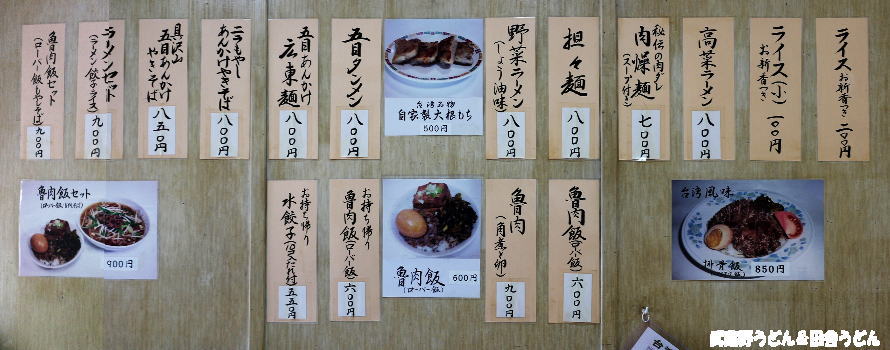 ライス お新香つき 二〇〇円
ライス(小) お新香つき 一〇〇円
高菜ラーメン 八〇〇円
秘伝の肉ダレ
肉燥麺(スープ付き) 七〇〇円
担々麺 八〇〇円
野菜ラーメン(しょう油味) 八〇〇円
台湾名物
自家製大根もち
500円
五目タンメン 八〇〇円
五目あんかけ
広東麺 八〇〇円
ニラもやし
あんかけやきそば 八〇〇円
具沢山
五目あんかけ
やきそば 八五〇円
ラーメンセット
(ラーメン餃子ライス) 九〇〇円
魯肉飯セット
(ローバー飯もやしそば) 九〇〇円
台湾風味
排骨飯 850円
魯肉飯(ローバー飯) 六〇〇円
魯肉(角煮と卵) 九〇〇円
魯肉飯 600円
(ローバー飯)
お持ち帰り
魯肉飯(ローバー飯) 六〇〇円
お持ち帰り
水餃子 五五〇円
魯肉飯セット
900円
武蔵野うどん&田舎うどん